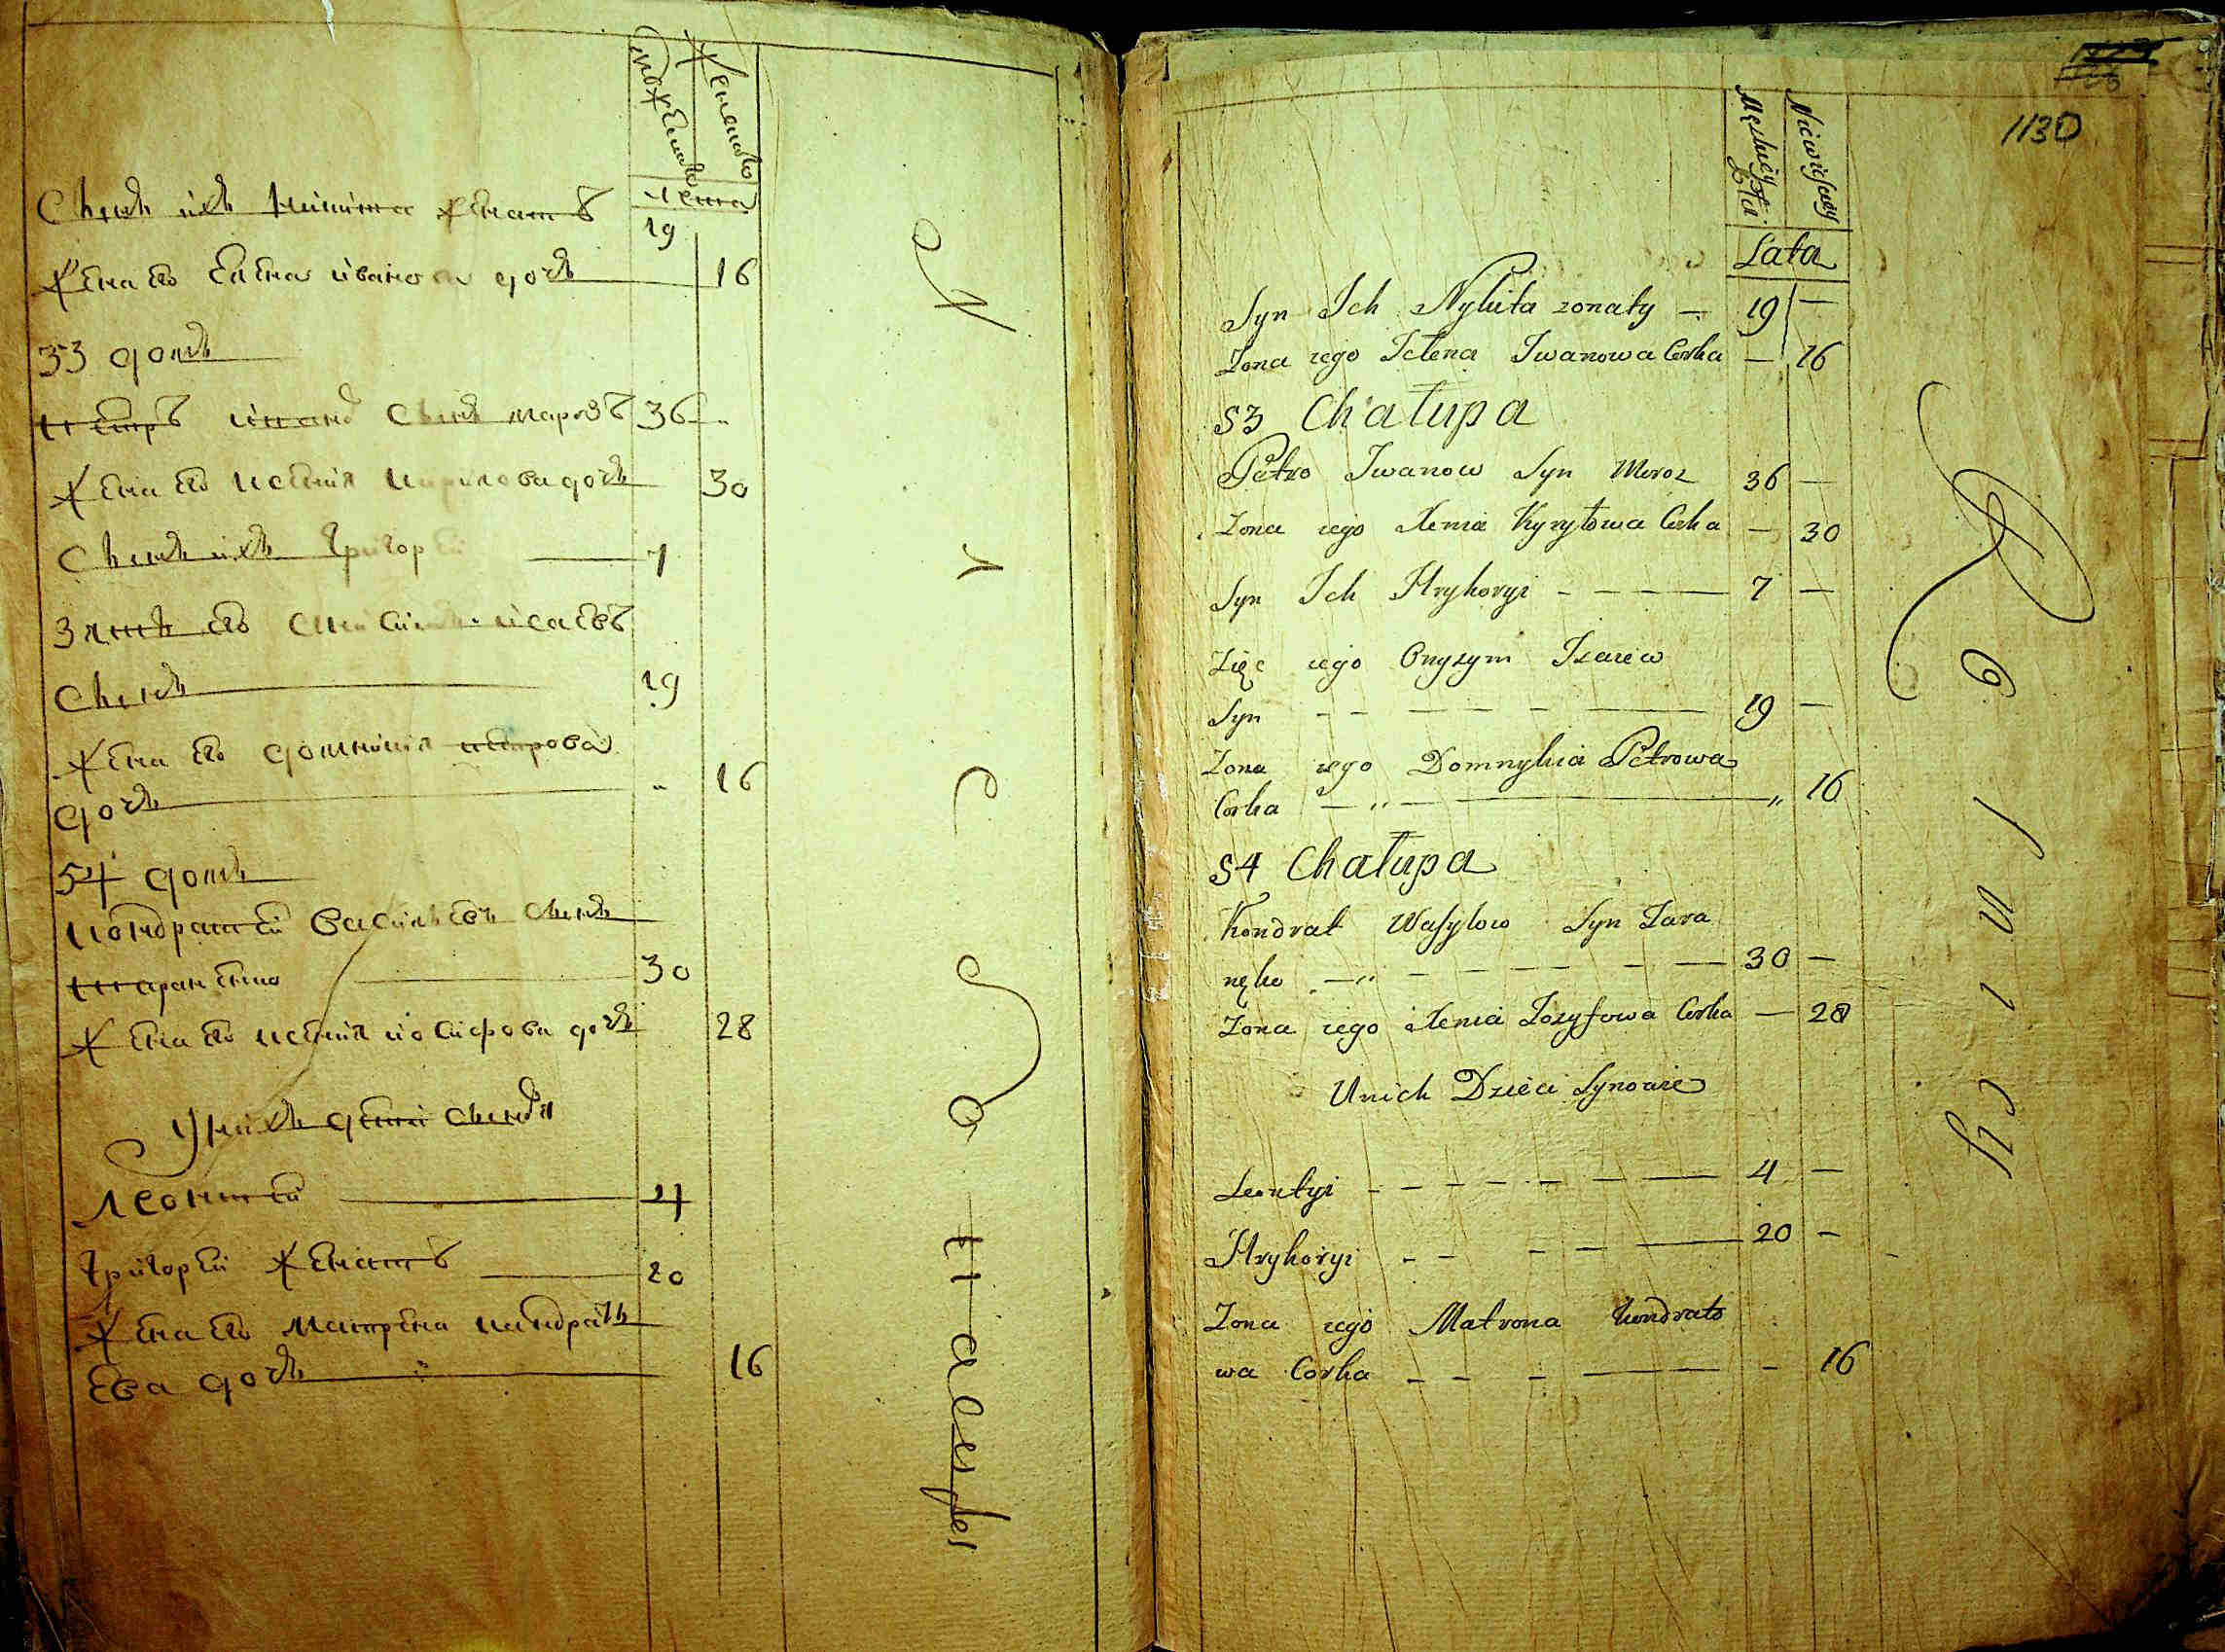 мужеска
женска
лета
Сынъ ихъ Никита женатъ 19
Жена его Елена иванова дочь 16
53 домъ
Петръ ивановъ Сынъ морозъ 36 "
Жена его Ксения Кирилова дочь 30
Сынъ ихъ Григорей 7
Зять его Онисимъ исаевъ
Сынъ 19
Жена его домникия петрова
дочь " 16
54 домъ
Кондратей Васильевъ Сынъ
тараненко 30
Жена его Ксения иосифова дочь 28
У нихъ дети сыновя
Леонтей 4
Григорей женатъ 20
Жена его Матрена кандрать
ева дочь 16
1130
Męskiey
Niewieściey
Lata
Syn Ich Nykita zonaty — 19 —
Zona iego Jelena Iwanowa Corka — 16
53 Chałupa
Petro Iwanow Syn Moroz 36 —
Zona iego Xenia Kyryłowa Corka — 30
Syn Ich Hryhoryi - - - - — 7 —
Zięc iego Onyzym Izaiew
Syn - - - - - — 19 —
Zona iego Domnykia Petrowa
Corka — " — — " 16
54 Chałupa
Kondrat Wasylow Syn Tara
nęko — " - - - - - — 30 —
Zona iego Xenia Jozyfowa Corka — 28
Unich Dzieci Synowie
Leontyi - - - - - - — 4 —
Hryhoryi - - - - — 20 —
Zona iego Matrona Kondrato
wa Corka - - - — - 16